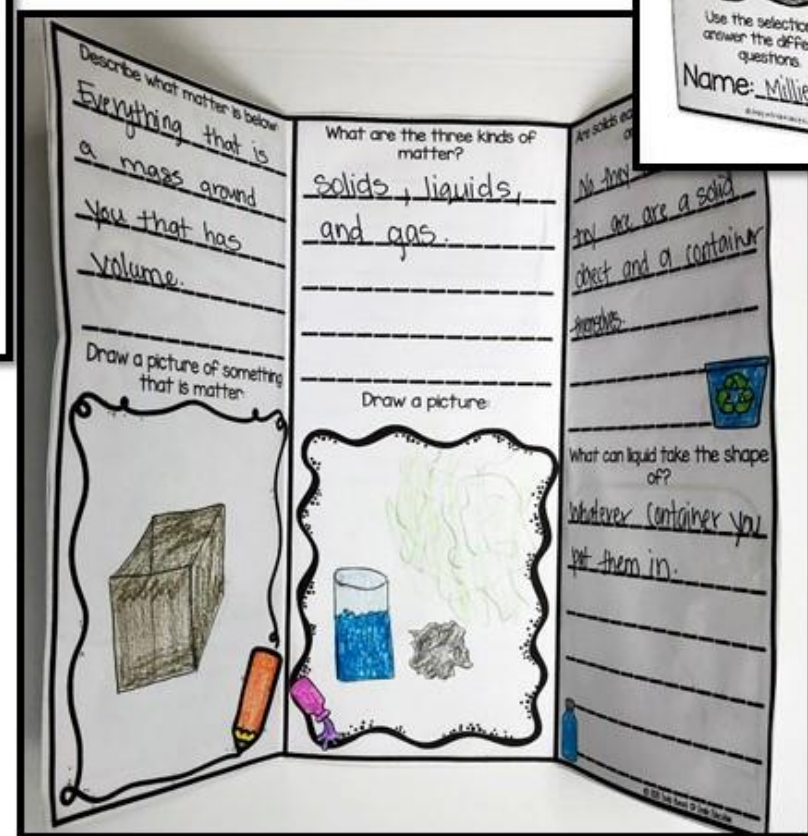 Use the selection
answer the diffe
questions.
Name: Millie
Describe what matter is below
Everything that is
a mass around
you that has
volume.
Draw a picture of something
that is matter
What are the three kinds of
matter?
solids, liquids,
and gas.
Draw a picture:
Are solids ea
No they
they are are a solid
object and a container
themselves.
What can liquid take the shape
of?
Whatever container you
put them in.